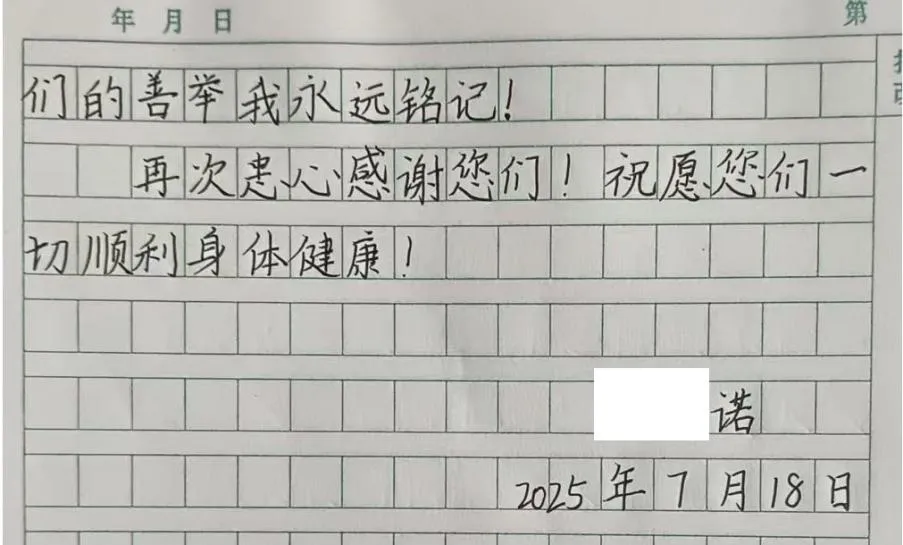 年 月 日 第
们的善举我永远铭记!
再次忠心感谢您们!祝愿您们一
切顺利身体健康!
诺
2025年7月18日